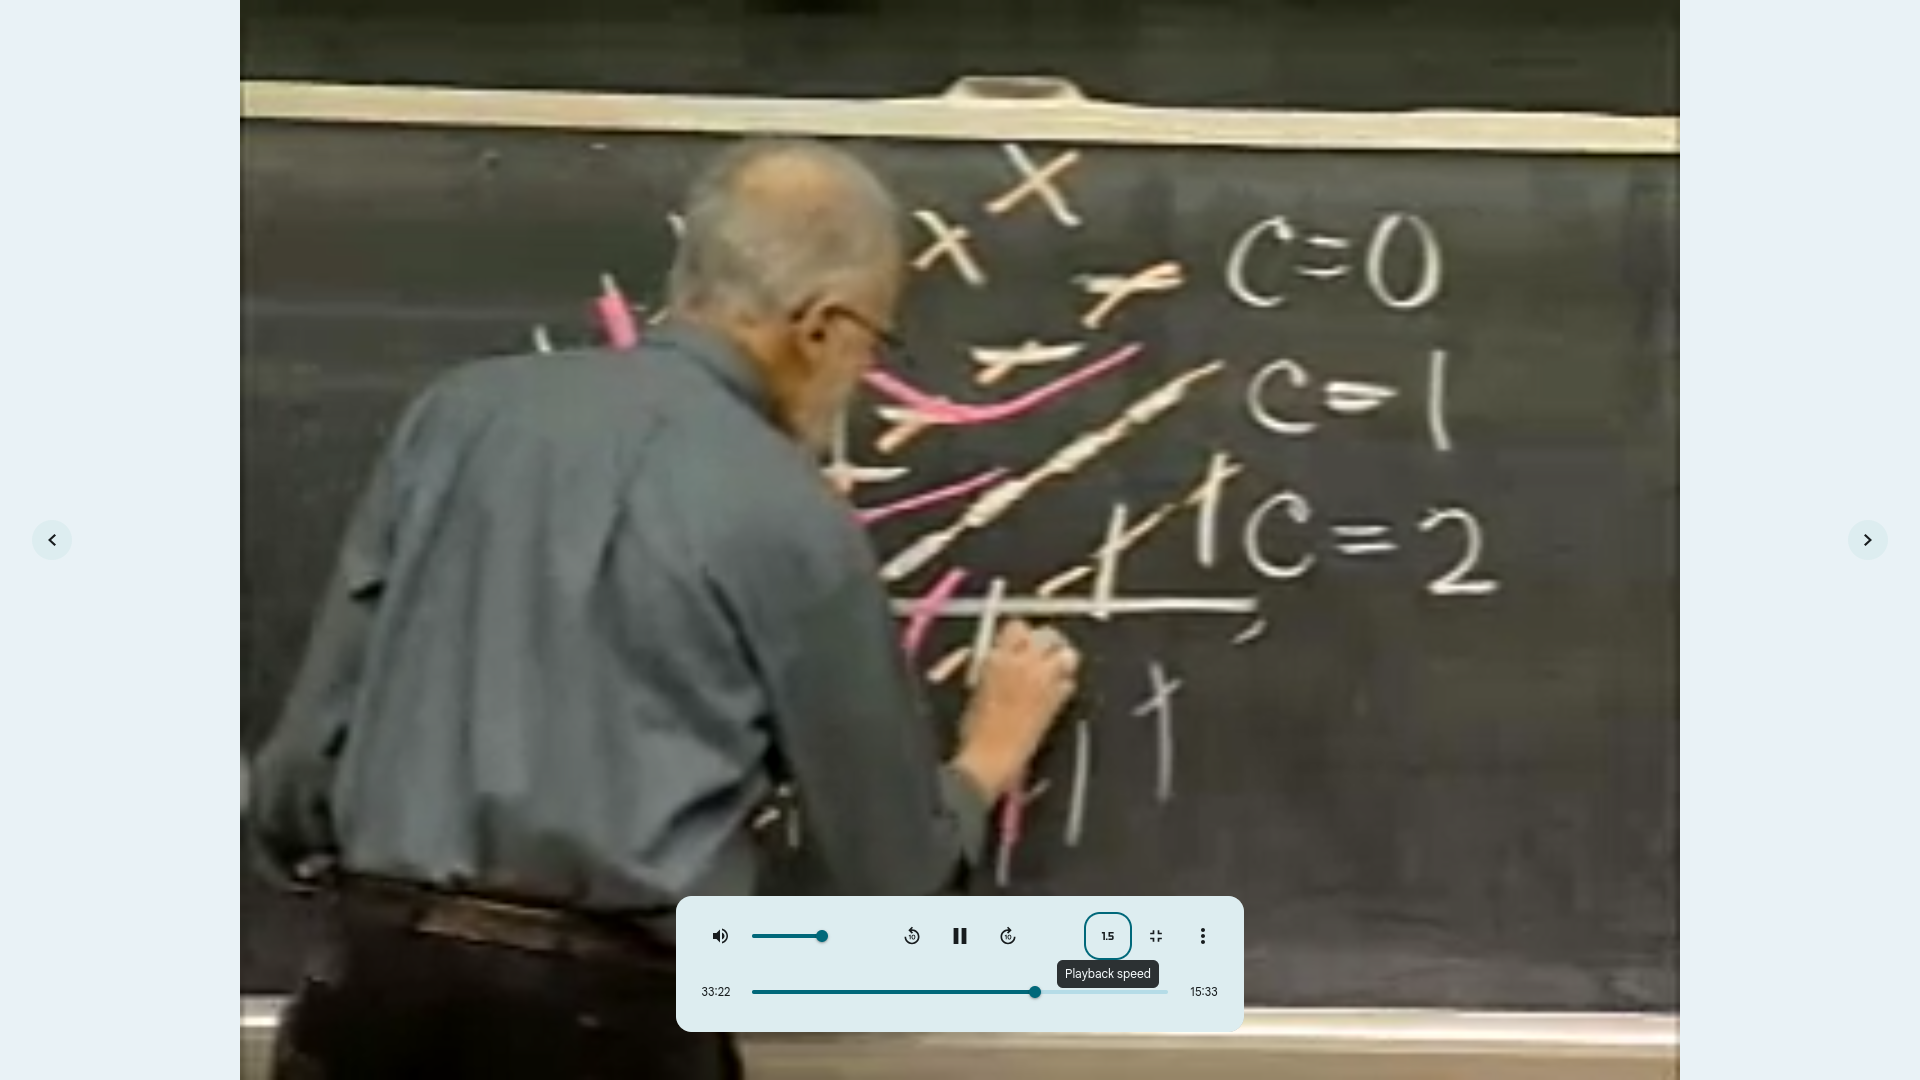 C=0
C=1
C=2
10
10
1.5
Playback speed
33:22
15:33